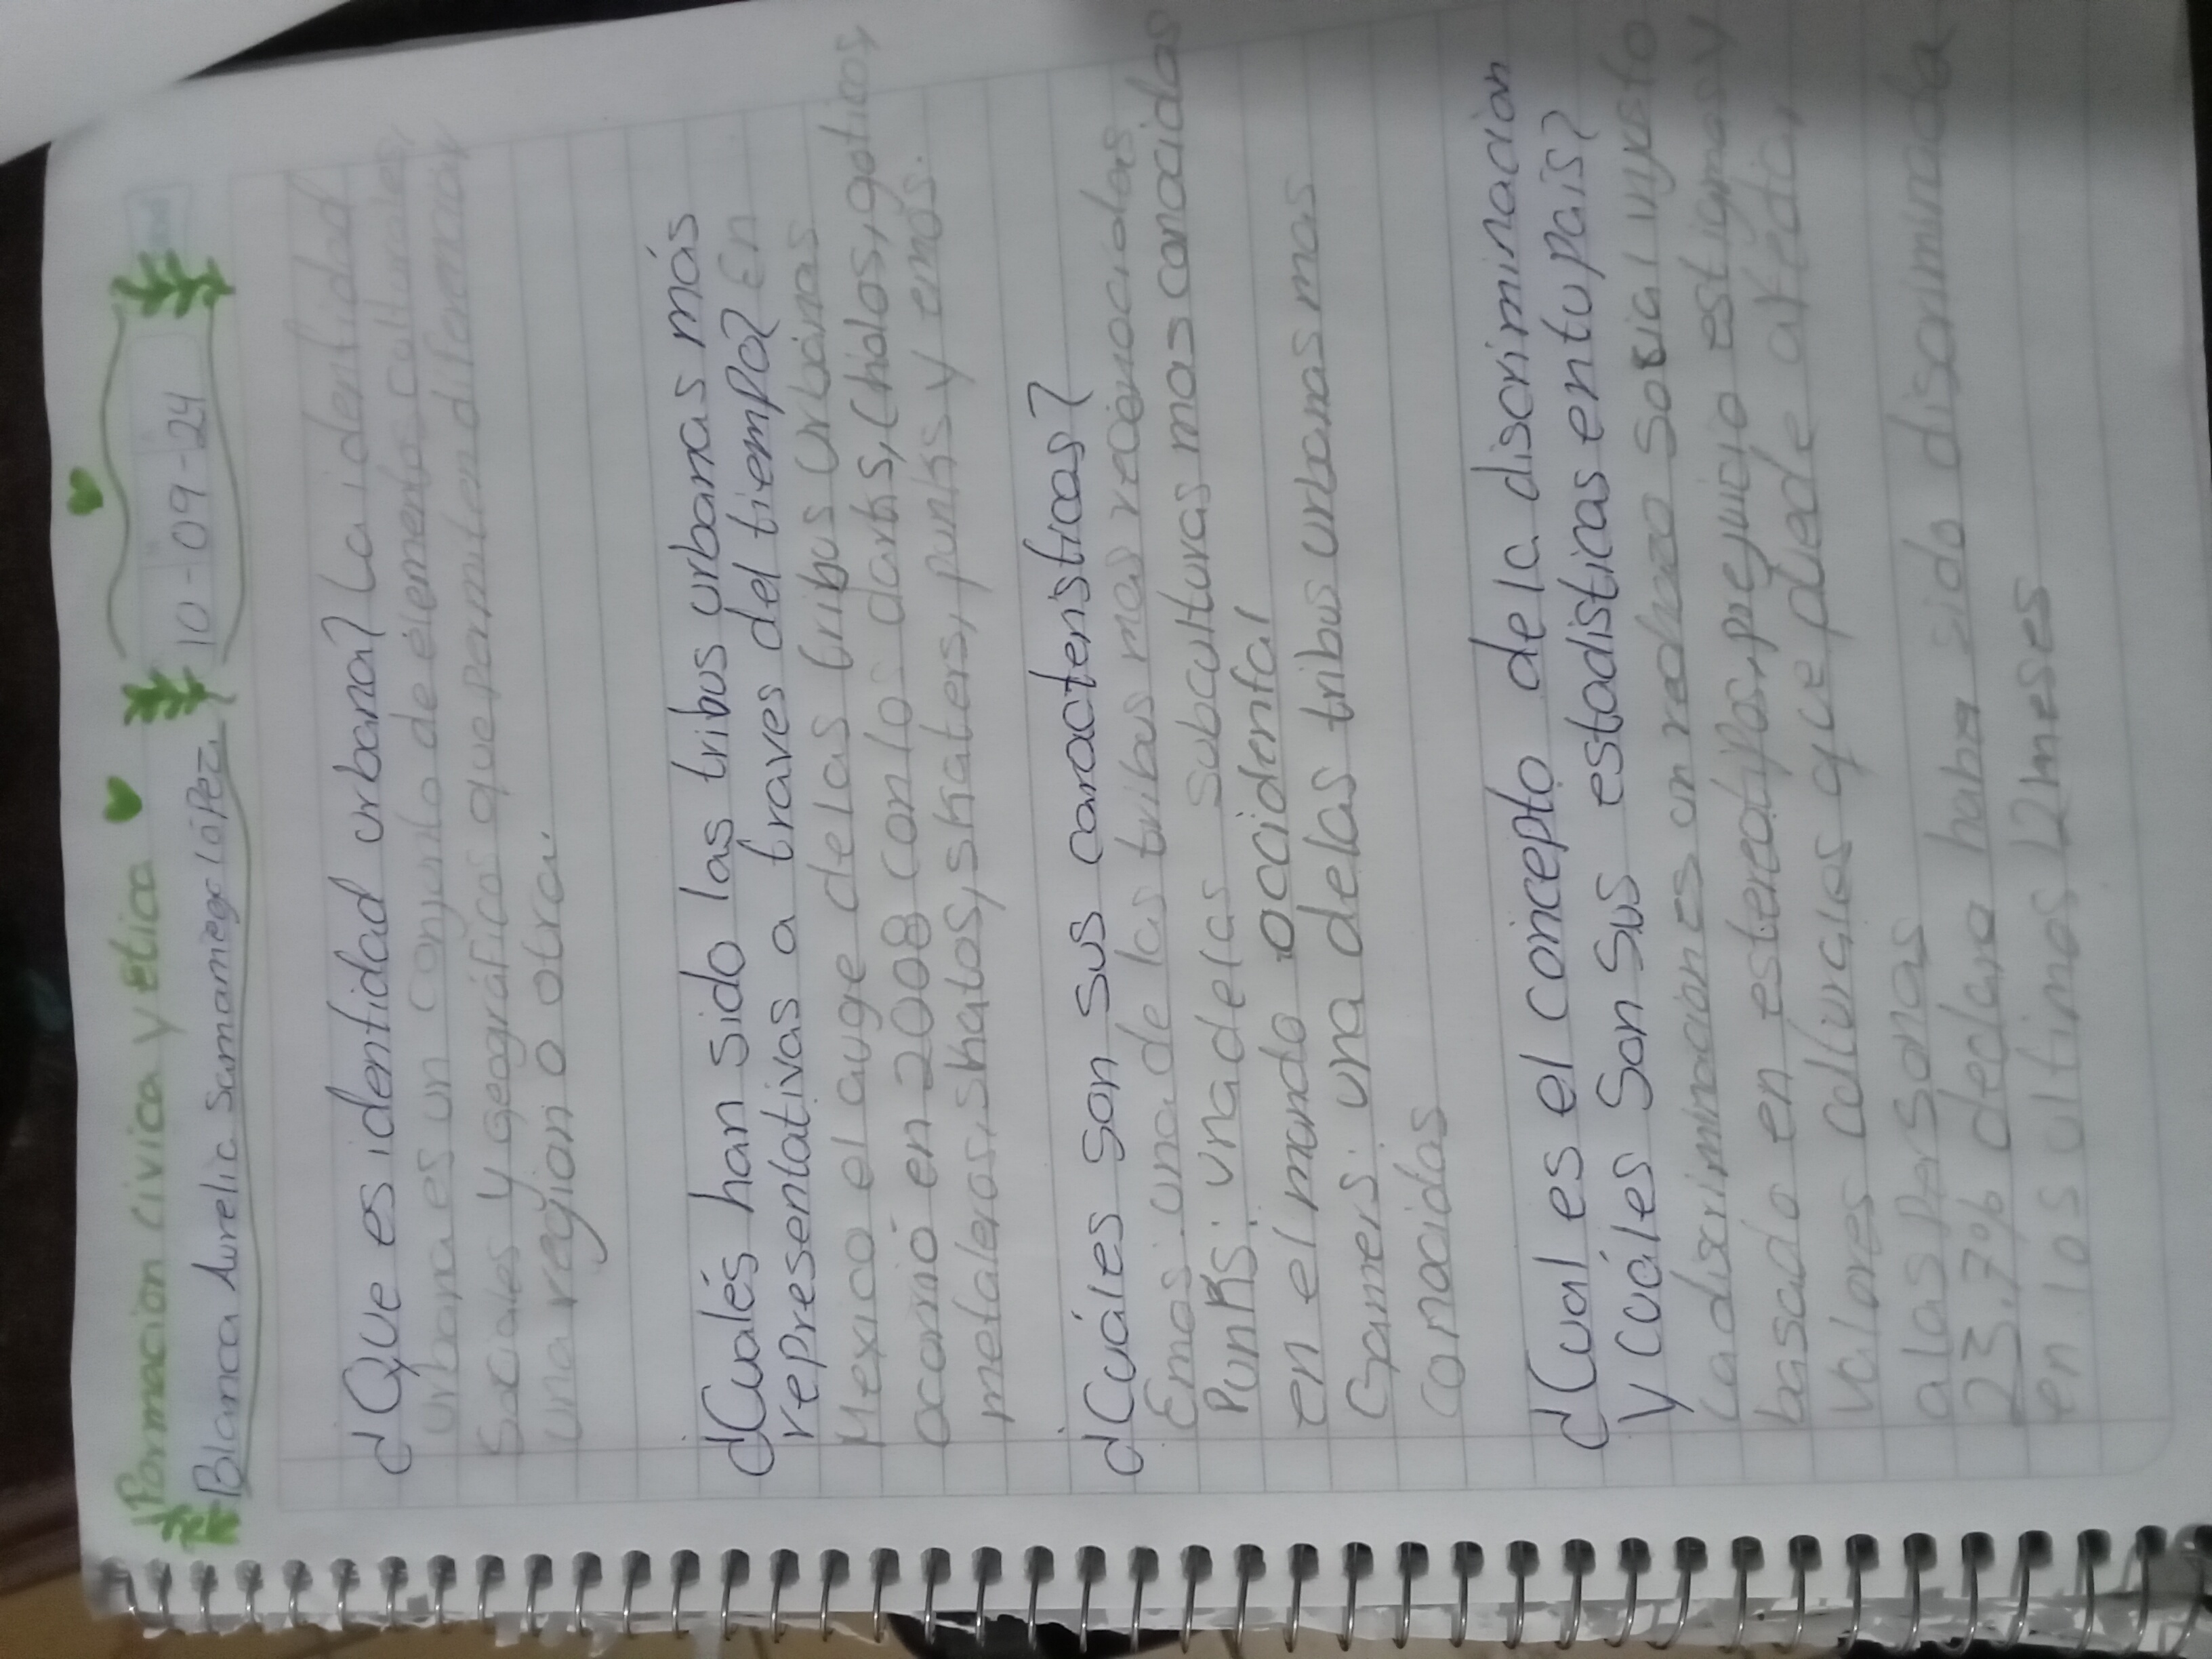 Formación Cívica y Ética
Blanca Aurelia Samaniego López 10-09-24
¿Que es identidad urbana? La identidad
urbana es un conjunto de elementos culturales,
sociales y geográficos que permiten diferenciar
una region o otra.
¿Cualés han sido las tribus urbanas más
representativas a traves del tiempo? En
Mexico el auge de las tribus urbanas
ocorrió en 2008 con los darks, Cholos, goticos,
metaleros, skatos, skaters, punks y emos.
¿Cuáles son sus caracteristicas?
Emos: una de las tribus mas reconocidas
Punks: una de las subculturas mas conocidas
en el mundo occidental
Gamers: una de las tribus urbanas mas
conocidas
¿Cual es el concepto de la discriminación
y cuáles Son Sus estadisticas en tu país?
La discriminación es un rechazo social injusto
basado en estereotipos, prejuicio estigmas y
valores culturales que puede afectar
a las personas
23.7% declaro haber sido discriminada
en los ultimos 12 meses